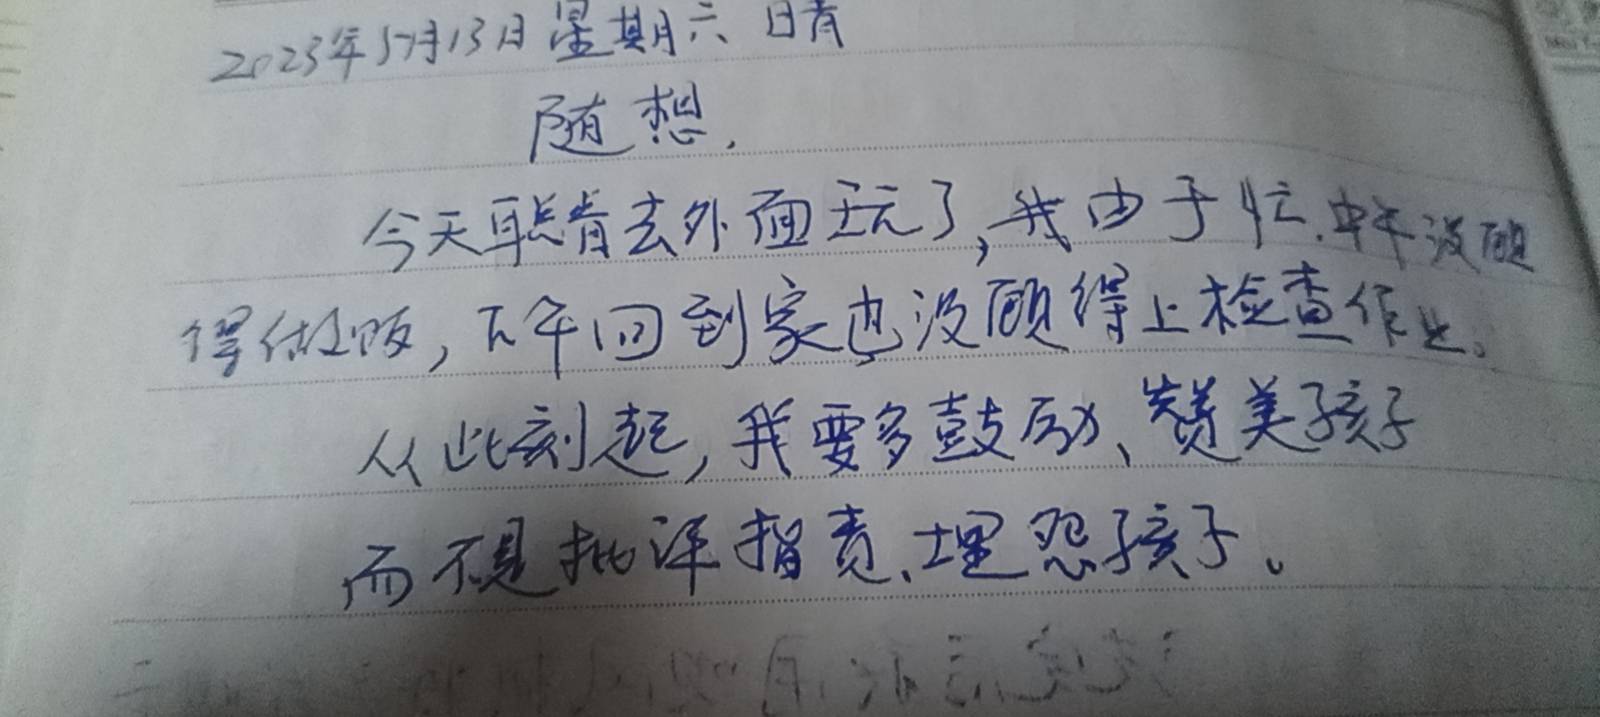 2023年5月13日 星期六 晴
随想.
今天聪睿去外面玩了,我由于忙.中午没顾
得做饭,下午回到家也没顾得上检查作业。
从此刻起,我要多鼓励、赞美孩子
而不是批评指责、埋怨孩子。